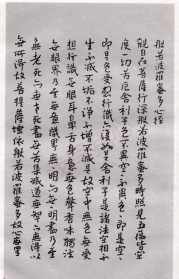 般若波羅蜜多心経
觀自在菩薩行深般若波羅蜜多時照見五蘊皆空
度一切苦厄舍利子色不異空空不異色色即是空空
即是色受想行識亦復如是舍利子是諸法空相不
生不滅不垢不淨不增不減是故空中無色無受
想行識無眼耳鼻舌身意無色聲香味觸法
無眼界乃至無意識界無無明亦無無明盡乃至
無老死亦無老死盡無苦集滅道無智亦無得以
無所得故菩提薩埵依般若波羅蜜多故心無罣